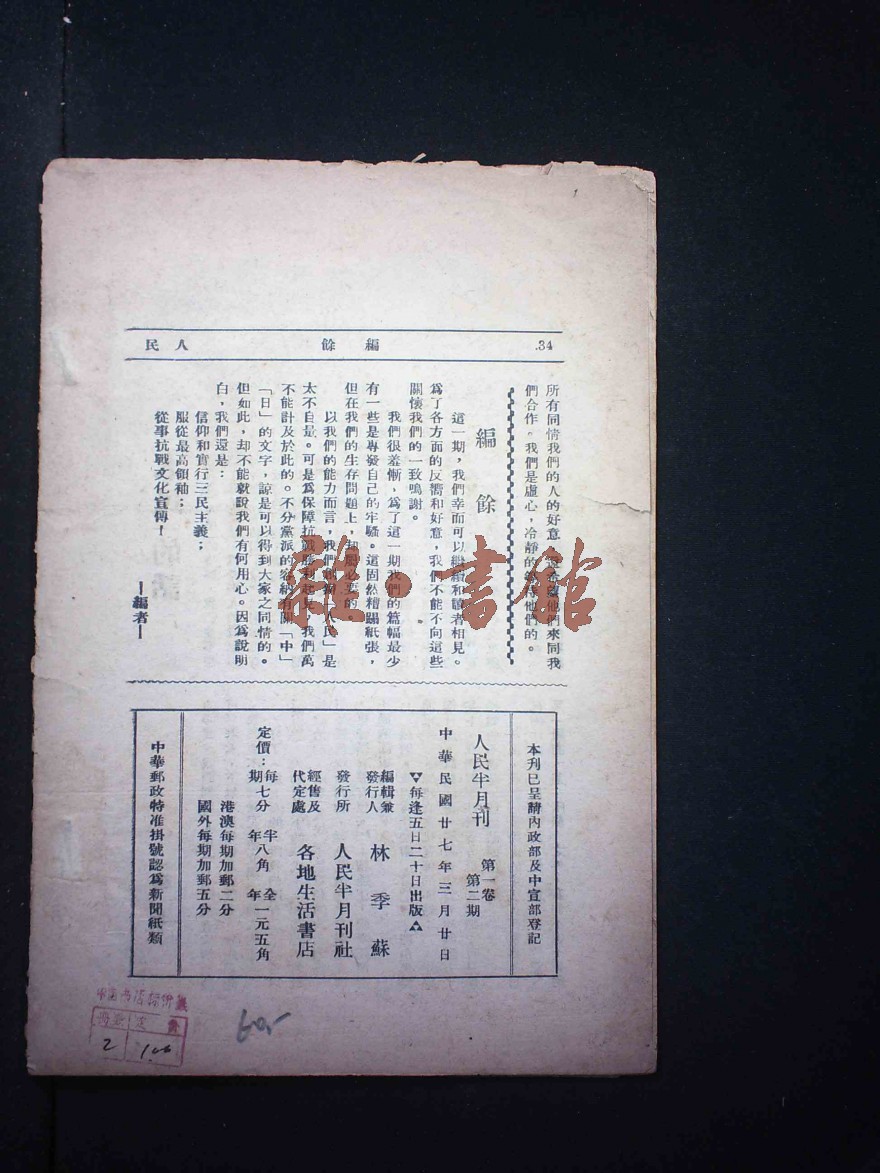 34.
編餘
人民
所有同情我們的人的好意
他們來同我
們合作。我們是虛心,冷靜的
他們的。
編餘
這一期,我們幸而可以繼續和讀者相見。
爲了各方面的反響和好意,我們不能不向這些
關懷我們的一致鳴謝。
我們很羞慚,爲了這一期我們的篇幅最少
有一些是專發自己的牢騷。這固然糟蹋紙張,
但在我們的生存問題上,却是必要的。
以我們的能力而言,我們創辦「人民」是
太不自量。可是爲保障抗戰勝利起見,我們萬
不能計及於此的。不分黨派的容納有關「中」
「日」的文字,諒是可以得到大家之同情的。
但如此,却不能就說我們有何用心。因爲說明
白,我們還是:
信仰和實行三民主義;
服從最高領袖;
從事抗戰文化宣傳!
—編者—
本刊已呈請內政部及中宣部登記
人民半月刊 第一卷 第二期
中華民國廿七年三月廿日
每逢五日二十日出版
編輯兼發行人 林季蘇
發行所 人民半月刊社
經售及代定處 各地生活書店
定價:每期七分 半年八角 全年一元五角
港澳每期加郵二分
國外每期加郵五分
中華郵政特准掛號認爲新聞紙類
雜·書館
2
100